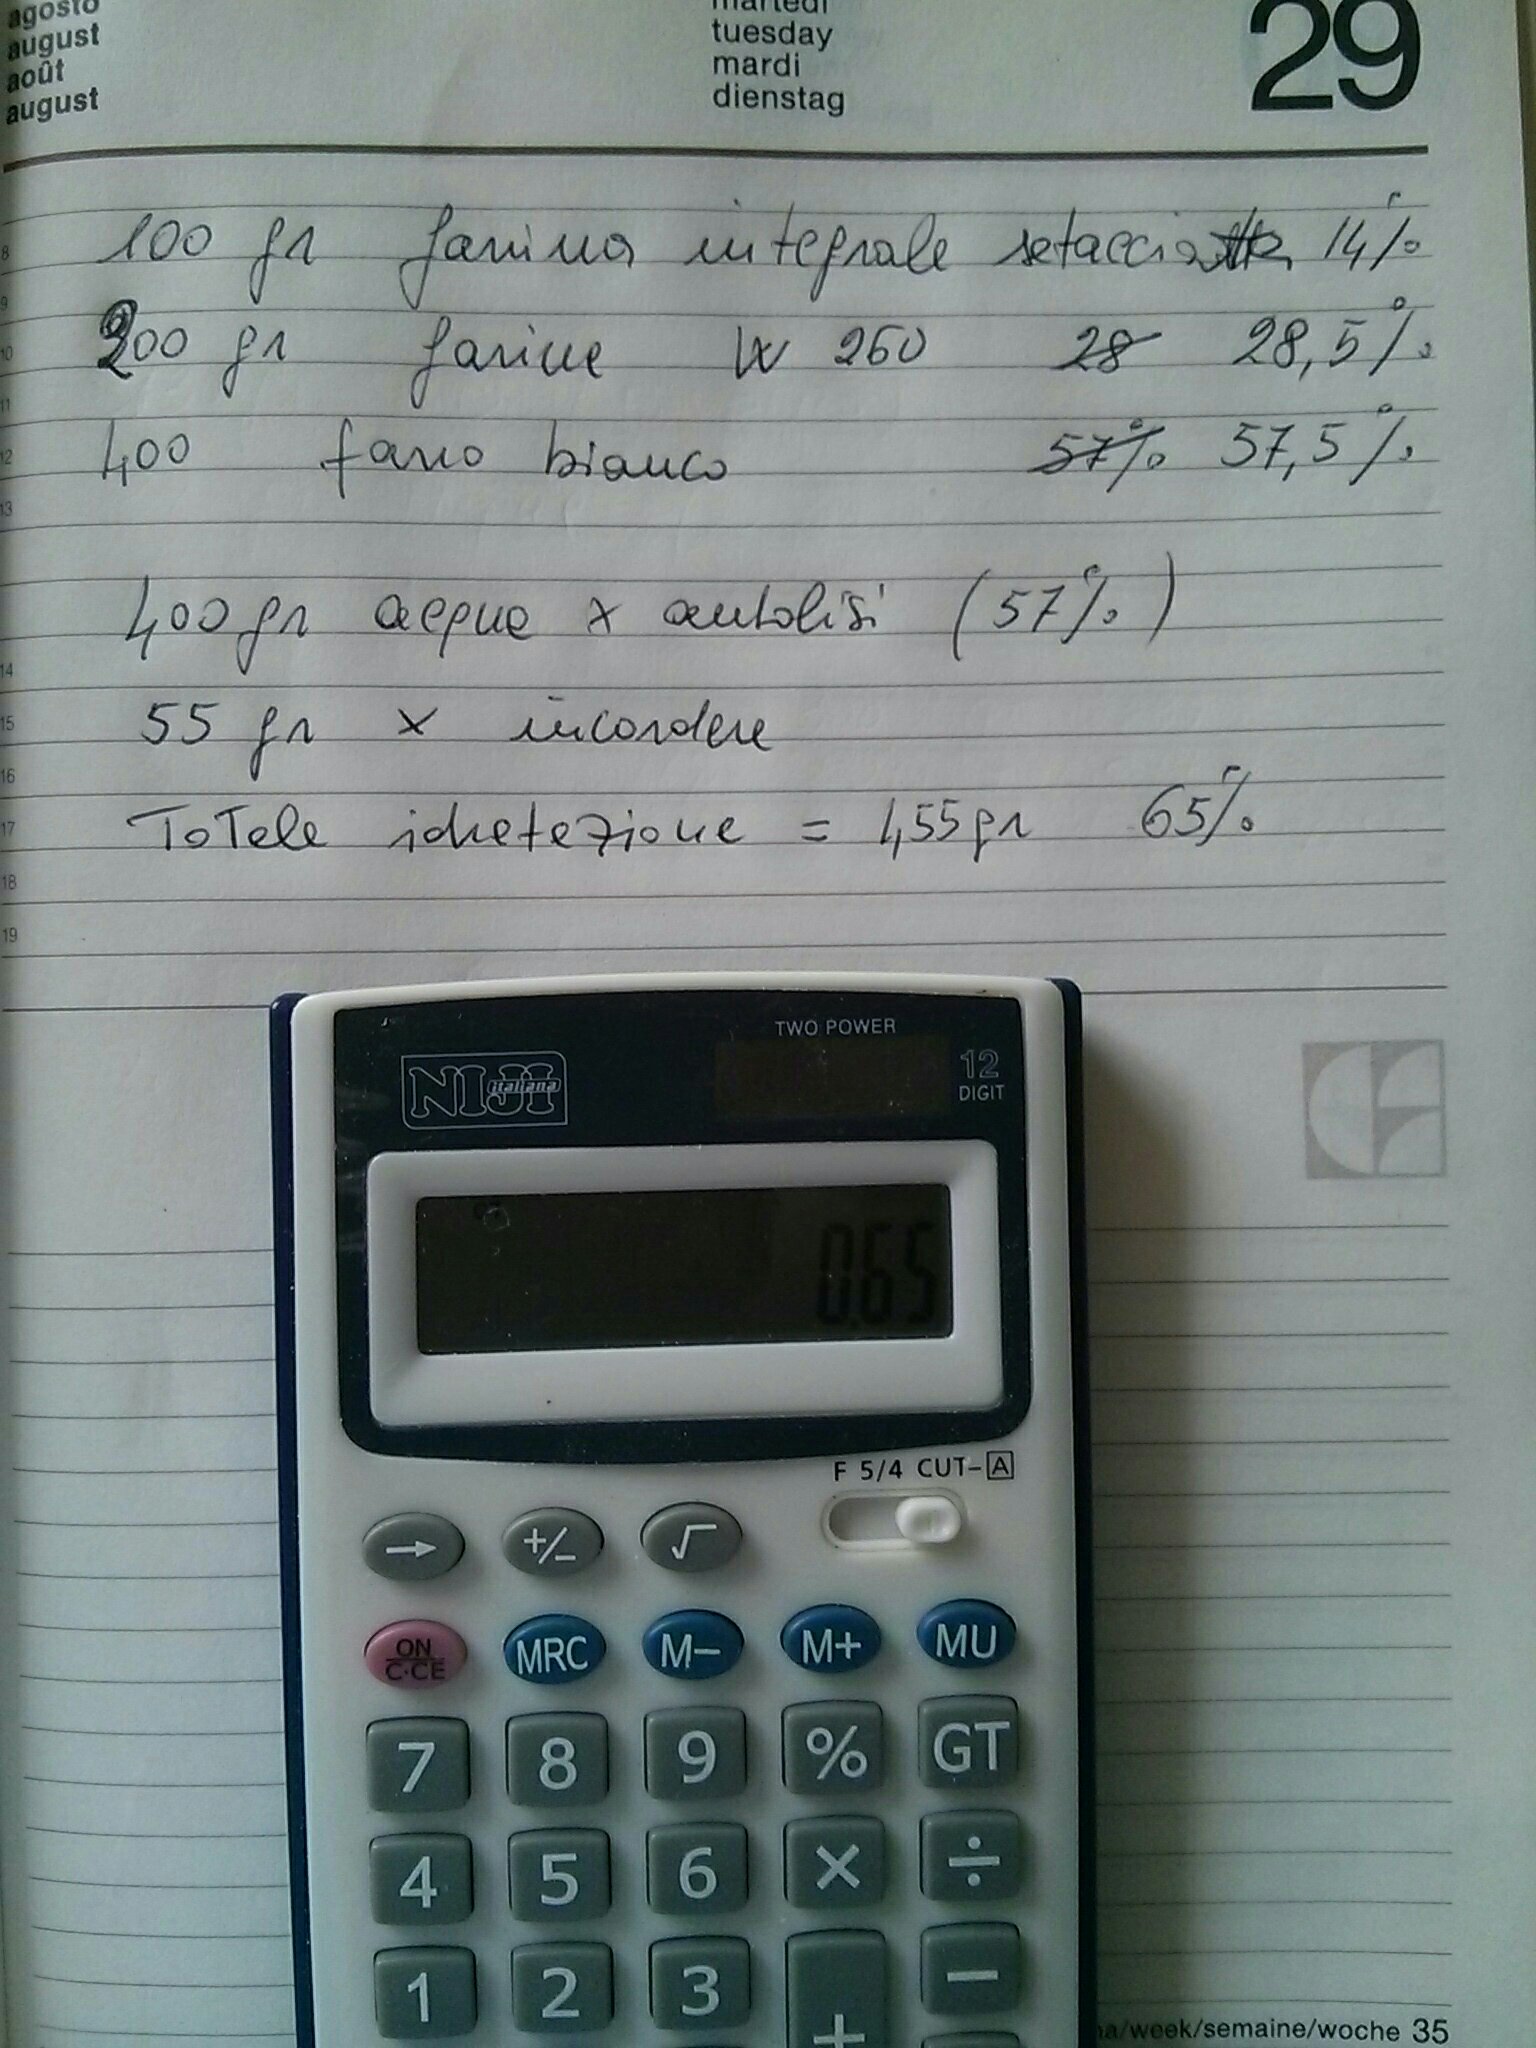 agosto
august
août
august
martedì
tuesday
mardi
dienstag
29
8
100 gr farina integrale setaccia 14%
9
10
200 gr farine W 260 28 28,5%
11
12
400 farro bianco 57% 57,5%
13
400 gr acque x autolisi (57%)
14
15
55 gr x incordere
16
17
ToTele idretezione = 455 gr 65%
18
19
TWO POWER
NIJI italiana
12
DIGIT
0.65
F 5/4 CUT-A
→ +/- √
ON
C·CE MRC M− M+ MU
7 8 9 % GT
4 5 6 × ÷
1 2 3 + −
na/week/semaine/woche 35